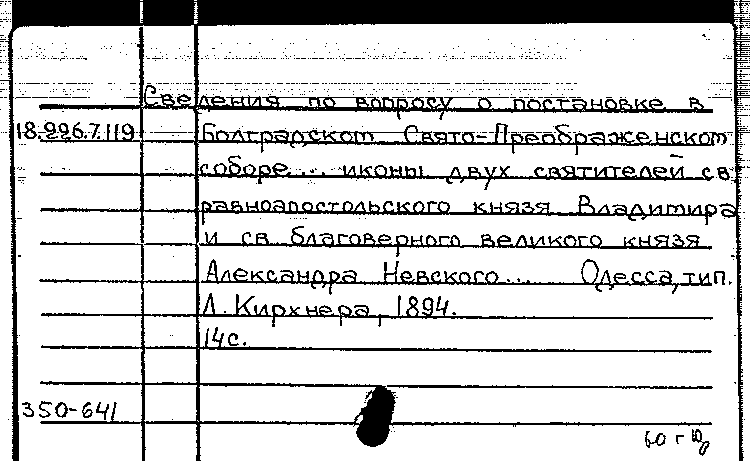 Сведения по вопросу о постановке в
18.996.7.119 Болградском Свято-Преображенском
соборе... иконы двух святителей св.
равноапостольского князя Владимира
и св. благоверного великого князя
Александра Невского... Одесса, тип.
Л. Кирхнера, 1894.
14 с.
350-641